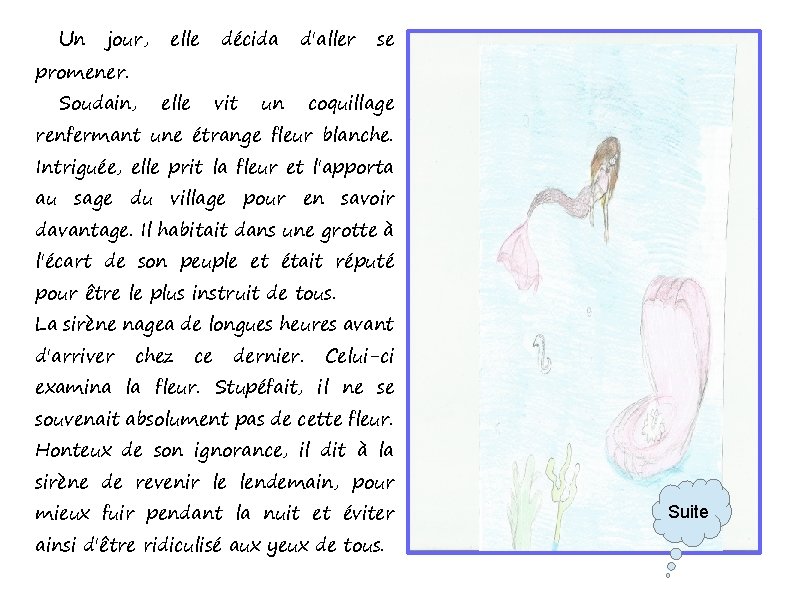 Un jour, elle décida d'aller se
promener.
Soudain, elle vit un coquillage
renfermant une étrange fleur blanche.
Intriguée, elle prit la fleur et l'apporta
au sage du village pour en savoir
davantage. Il habitait dans une grotte à
l'écart de son peuple et était réputé
pour être le plus instruit de tous.
La sirène nagea de longues heures avant
d'arriver chez ce dernier. Celui-ci
examina la fleur. Stupéfait, il ne se
souvenait absolument pas de cette fleur.
Honteux de son ignorance, il dit à la
sirène de revenir le lendemain, pour
mieux fuir pendant la nuit et éviter
ainsi d'être ridiculisé aux yeux de tous.
Suite